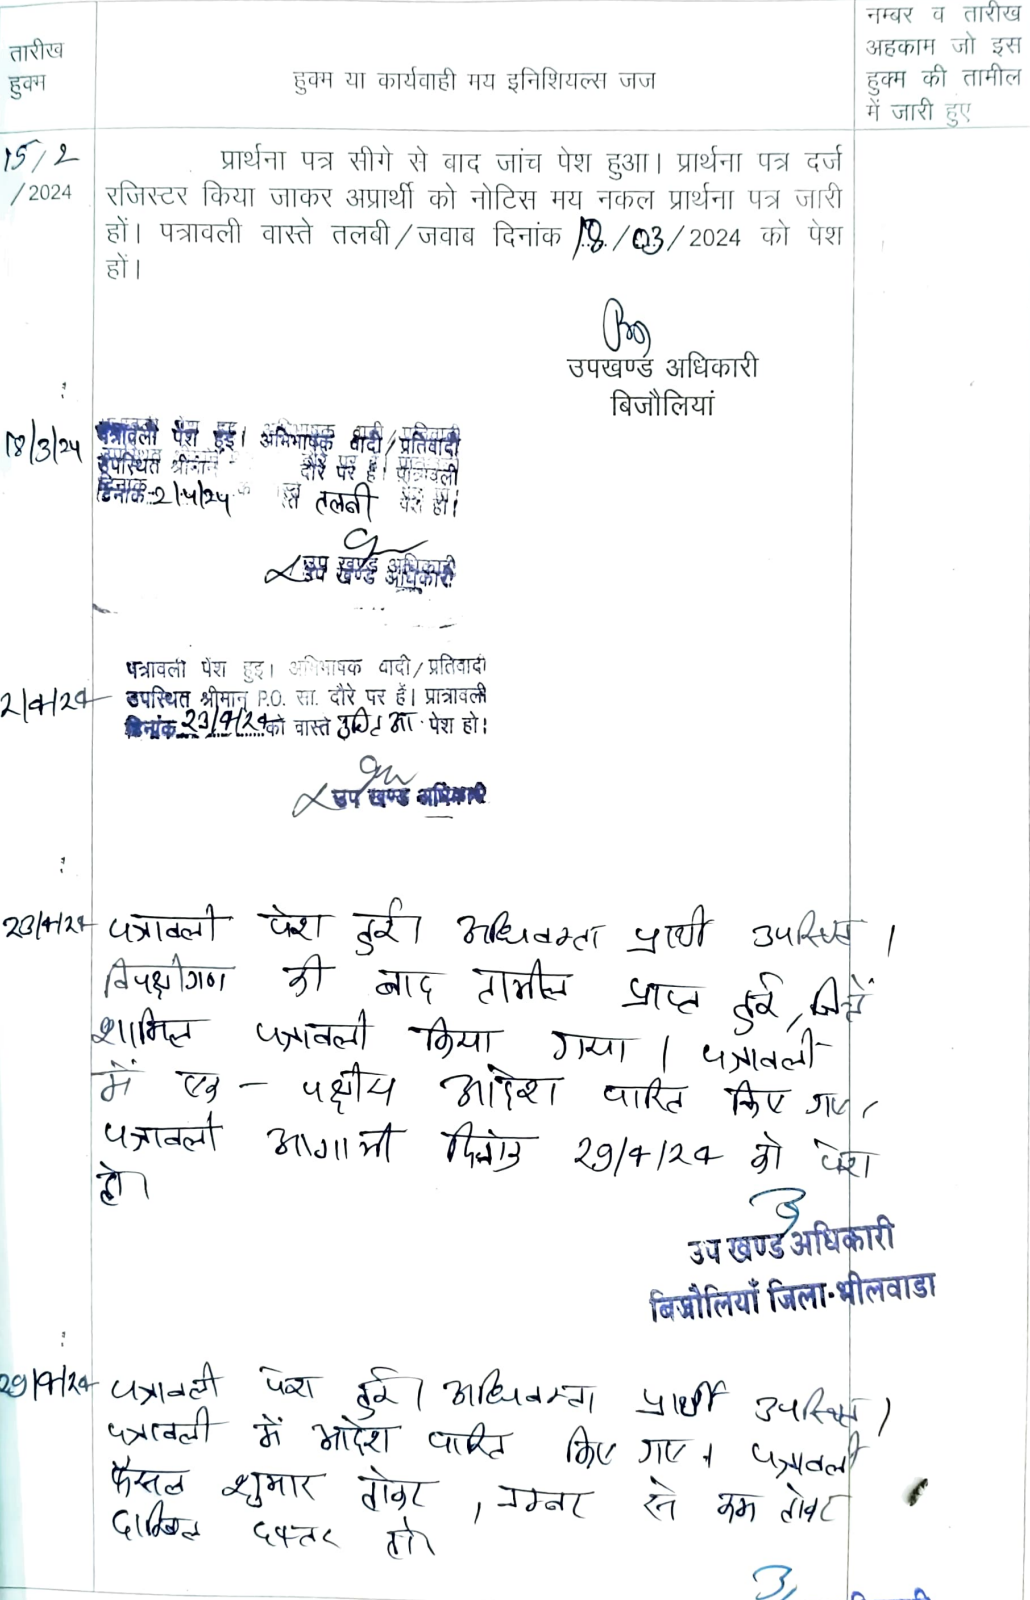 तारीख
हुक्म
हुक्म या कार्यवाही मय इनिशियल्स जज
नम्बर व तारीख
अहकाम जो इस
हुक्म की तामील
में जारी हुए
15/2
/2024
प्रार्थना पत्र सीगे से बाद जांच पेश हुआ। प्रार्थना पत्र दर्ज
रजिस्टर किया जाकर अप्रार्थी को नोटिस मय नकल प्रार्थना पत्र जारी
हों। पत्रावली वास्ते तलबी/जवाब दिनांक 18/03/2024 को पेश
हों।
उपखण्ड अधिकारी
बिजौलियां
18/3/24
पत्रावली पेश हुई। अभिभाषक वादी/प्रतिवादी
उपस्थित श्रीमान दौरे पर हैं। पत्रावली
दिनांक 2/4/24 तलबी पेश हो।
उप खण्ड अधिकारी
2/4/24
पत्रावली पेश हुइ। अभिभाषक वादी/प्रतिवादी
उपस्थित श्रीमान् P.O. सा. दौरे पर हैं। प्रात्रावली
दिनांक 23/4/24 को वास्ते पेश हो।
उप खण्ड अधिकारी
23/4/24
पत्रावली पेश हुई। अधिवक्ता प्रार्थी उपस्थित।
विपक्षीगण की बाद तामील प्राप्त हुई, जिन्हें
शामिल पत्रावली किया गया। पत्रावली
में एक - पक्षीय आदेश पारित किए गए।
पत्रावली आगामी दिनांक 29/4/24 को पेश
हो।
उप खण्ड अधिकारी
बिजौलियाँ जिला-भीलवाडा
29/4/24
पत्रावली पेश हुई। अधिवक्ता प्रार्थी उपस्थित।
पत्रावली में आदेश पारित किए गए। पत्रावली
फैसल शुमार होकर, नम्बर से कम होकर
दाखिल दफ्तर हो।